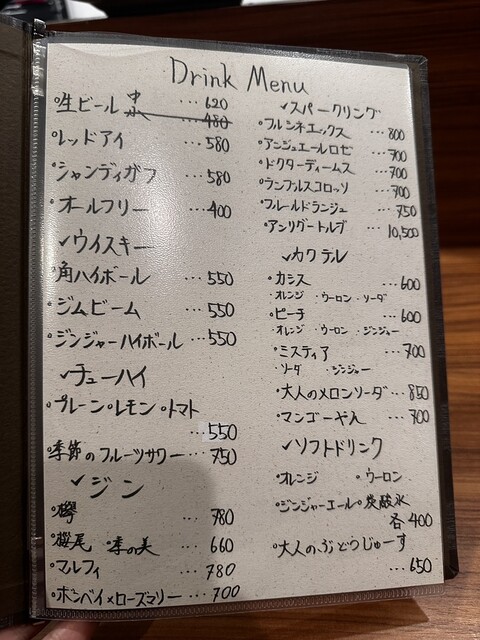 Drink Menu
・生ビール 中 …620
小 …480
・レッドアイ …580
・シャンディガフ …580
・オールフリー …400
✓ウイスキー
・角ハイボール …550
・ジムビーム …550
・ジンジャーハイボール …550
✓チューハイ
・プレーン・レモン・トマト
…550
・季節のフルーツサワー …750
✓ジン
・欅 …780
・桜尾 ・季の美 …660
・マルフィ …780
・ボンベイ×ローズマリー …700
✓スパークリング
・フルシネエックス …800
・アンジュエールロゼ …700
・ドクターディームス …700
・ランブルスコロッソ …700
・フルールドランジュ …750
・アンリグートルブ …10,500
✓カクテル
・カシス …600
・オレンジ ・ウーロン ・ソーダ
・ピーチ …600
・オレンジ ・ウーロン ・ジンジャー
・ミスティア …700
・ソーダ ・ジンジャー
・大人のメロンソーダ …850
・マンゴーヤム …700
✓ソフトドリンク
・オレンジ ・ウーロン
・ジンジャーエール・炭酸水
各400
・大人のぶどうじゅーす
…650